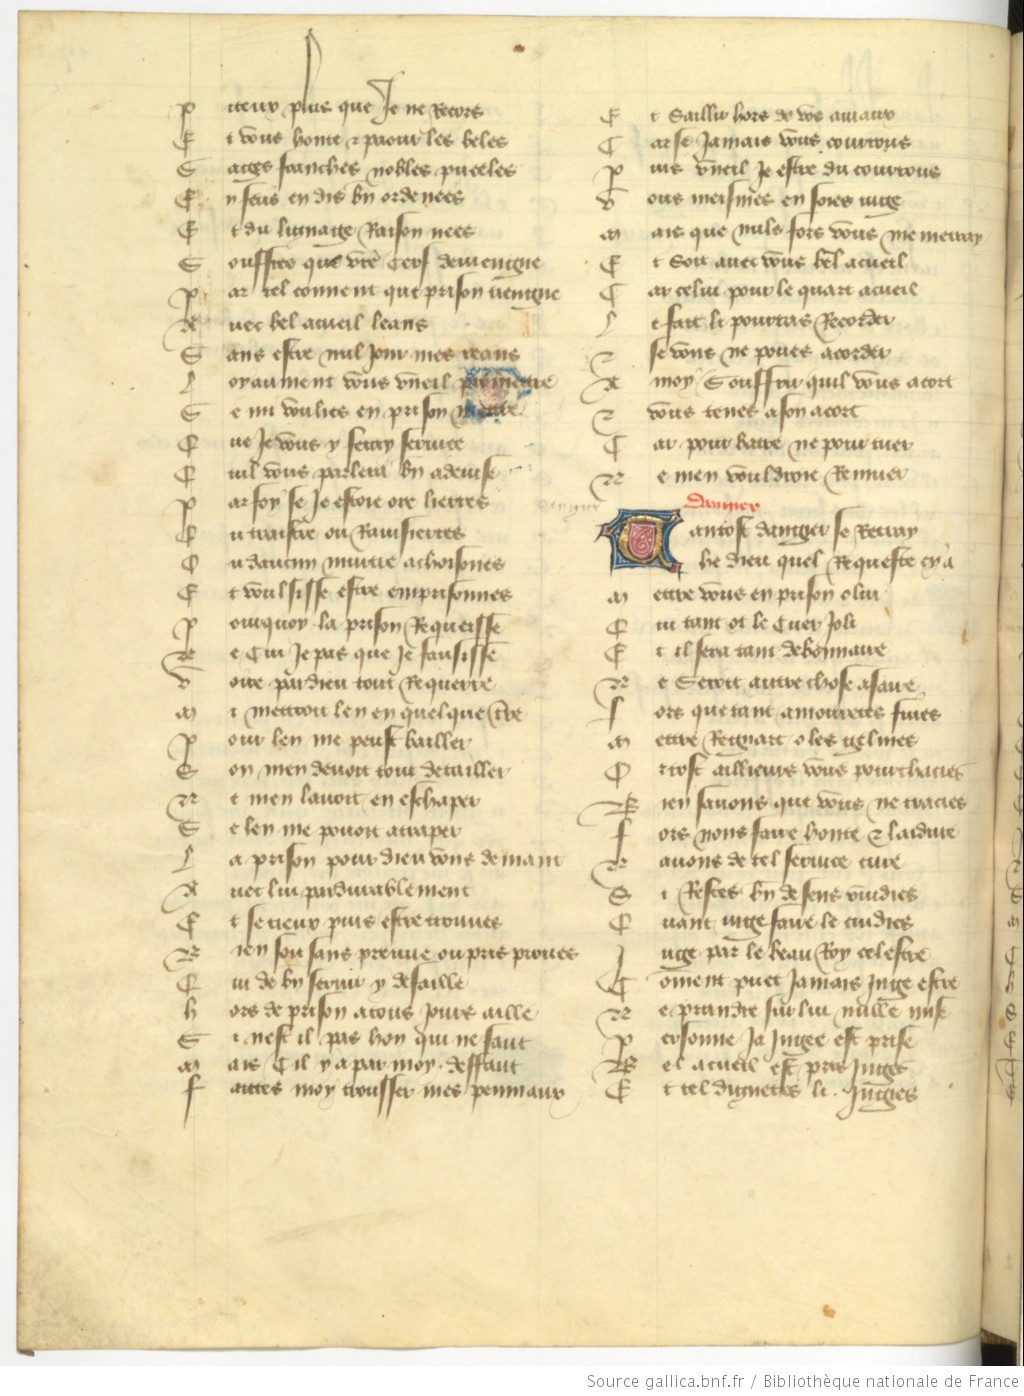 P iteux plus que Je ne Recors
E t vous honte & paour les beles
S ages franches nobles puceles
E n sens en dis bn ordenees
E t du lignaige Raison nees
S ouffres que vre serf deviengne
P ar tel convent que prison tiengne
A vec bel acueil leans
S ans estre nul Jour mes reans
L oyaument vous vueil
S e mi voulies en prison mettre
Q ue Je vous y feray service
Q uil vous parlera bn a devise
P ar foy se Je estoie ore lierres
O u traistre ou Ravissierres
O u daucun murtre achoisonnes
E t voulsisse estre emprisonnes
P ourquoy la prison Requeisse
N e Cui Je pas que Je fausisse
V oire par dieu tout Requerre
M i mettroit len en quelque tre
P our len me peust bailler
S on men devoit tout detailler
N e men lairoit en eschaper
S e len me povoit atraper
L a prison pour dieu vous demant
A vec lui pardurablement
E t se tieux puis estre trouves
R ien sou sans preuve ou pris prouves
Q ui de bn servir y defaille
h ors de prison a tous Jours aille
S i nest il pas hon qui ne faut
M ais Cil y a par moy deffaut
f aites moy trousser mes penniaux
E t Saillir hors de vos aniaux
C ar se Jamais vous courrous
P uis vueil Je estre du courrous
V ous meismes en soies iuge
M ais que nuls fors vous ne me iuge
E t Soit avec vous bel acueil
C ar celui pour le quart acueil
L e fait li pourras Recorder
& se vous ne poves acorder
A moy Souffrir quil vous acort
& vous tenes a son acort
C ar pour batre ne pour tuer
N e men vouldroie Remuer
Dangier
T antost dangier se Recray
he dieu quel Requeste cy a
M ettre vous en prison o lui
Q ui tant ot le Cuer Joli
E t il sera tant debonnaire
N e Seroit autre chose a faire
f ors que tant amouretes fines
M ettre Regnart o les gelines
O r tost ailleurs vous pourchacies
B ien savons que vous ne tracies
f ors nous faire honte & laidure
N avons de tel service cure
S i Restes bn de sens vuidies
Q uant iuge faire le cuidies
I uge par le beau Roy celestre
C oment puet Jamais Juge estre
N e prendre sur lui nulle mise
P ersonne Ja Jugee est prise
B el acueil est pris Juges
E t tel dignetes li Jugies
Source gallica.bnf.fr / Bibliothèque nationale de France